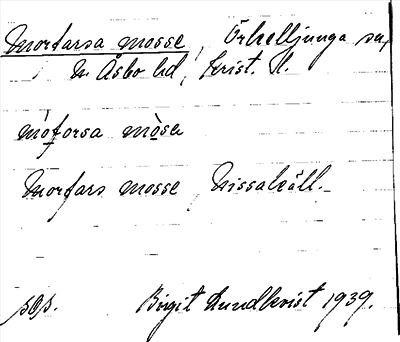 Morfarsa mosse, Örkelljunga sn,
N. Åsbo hd, Krist. l.
mòforsa mòsa
Morfars mosse Nissakäll.
sos.
Birgit Lundkvist 1939.